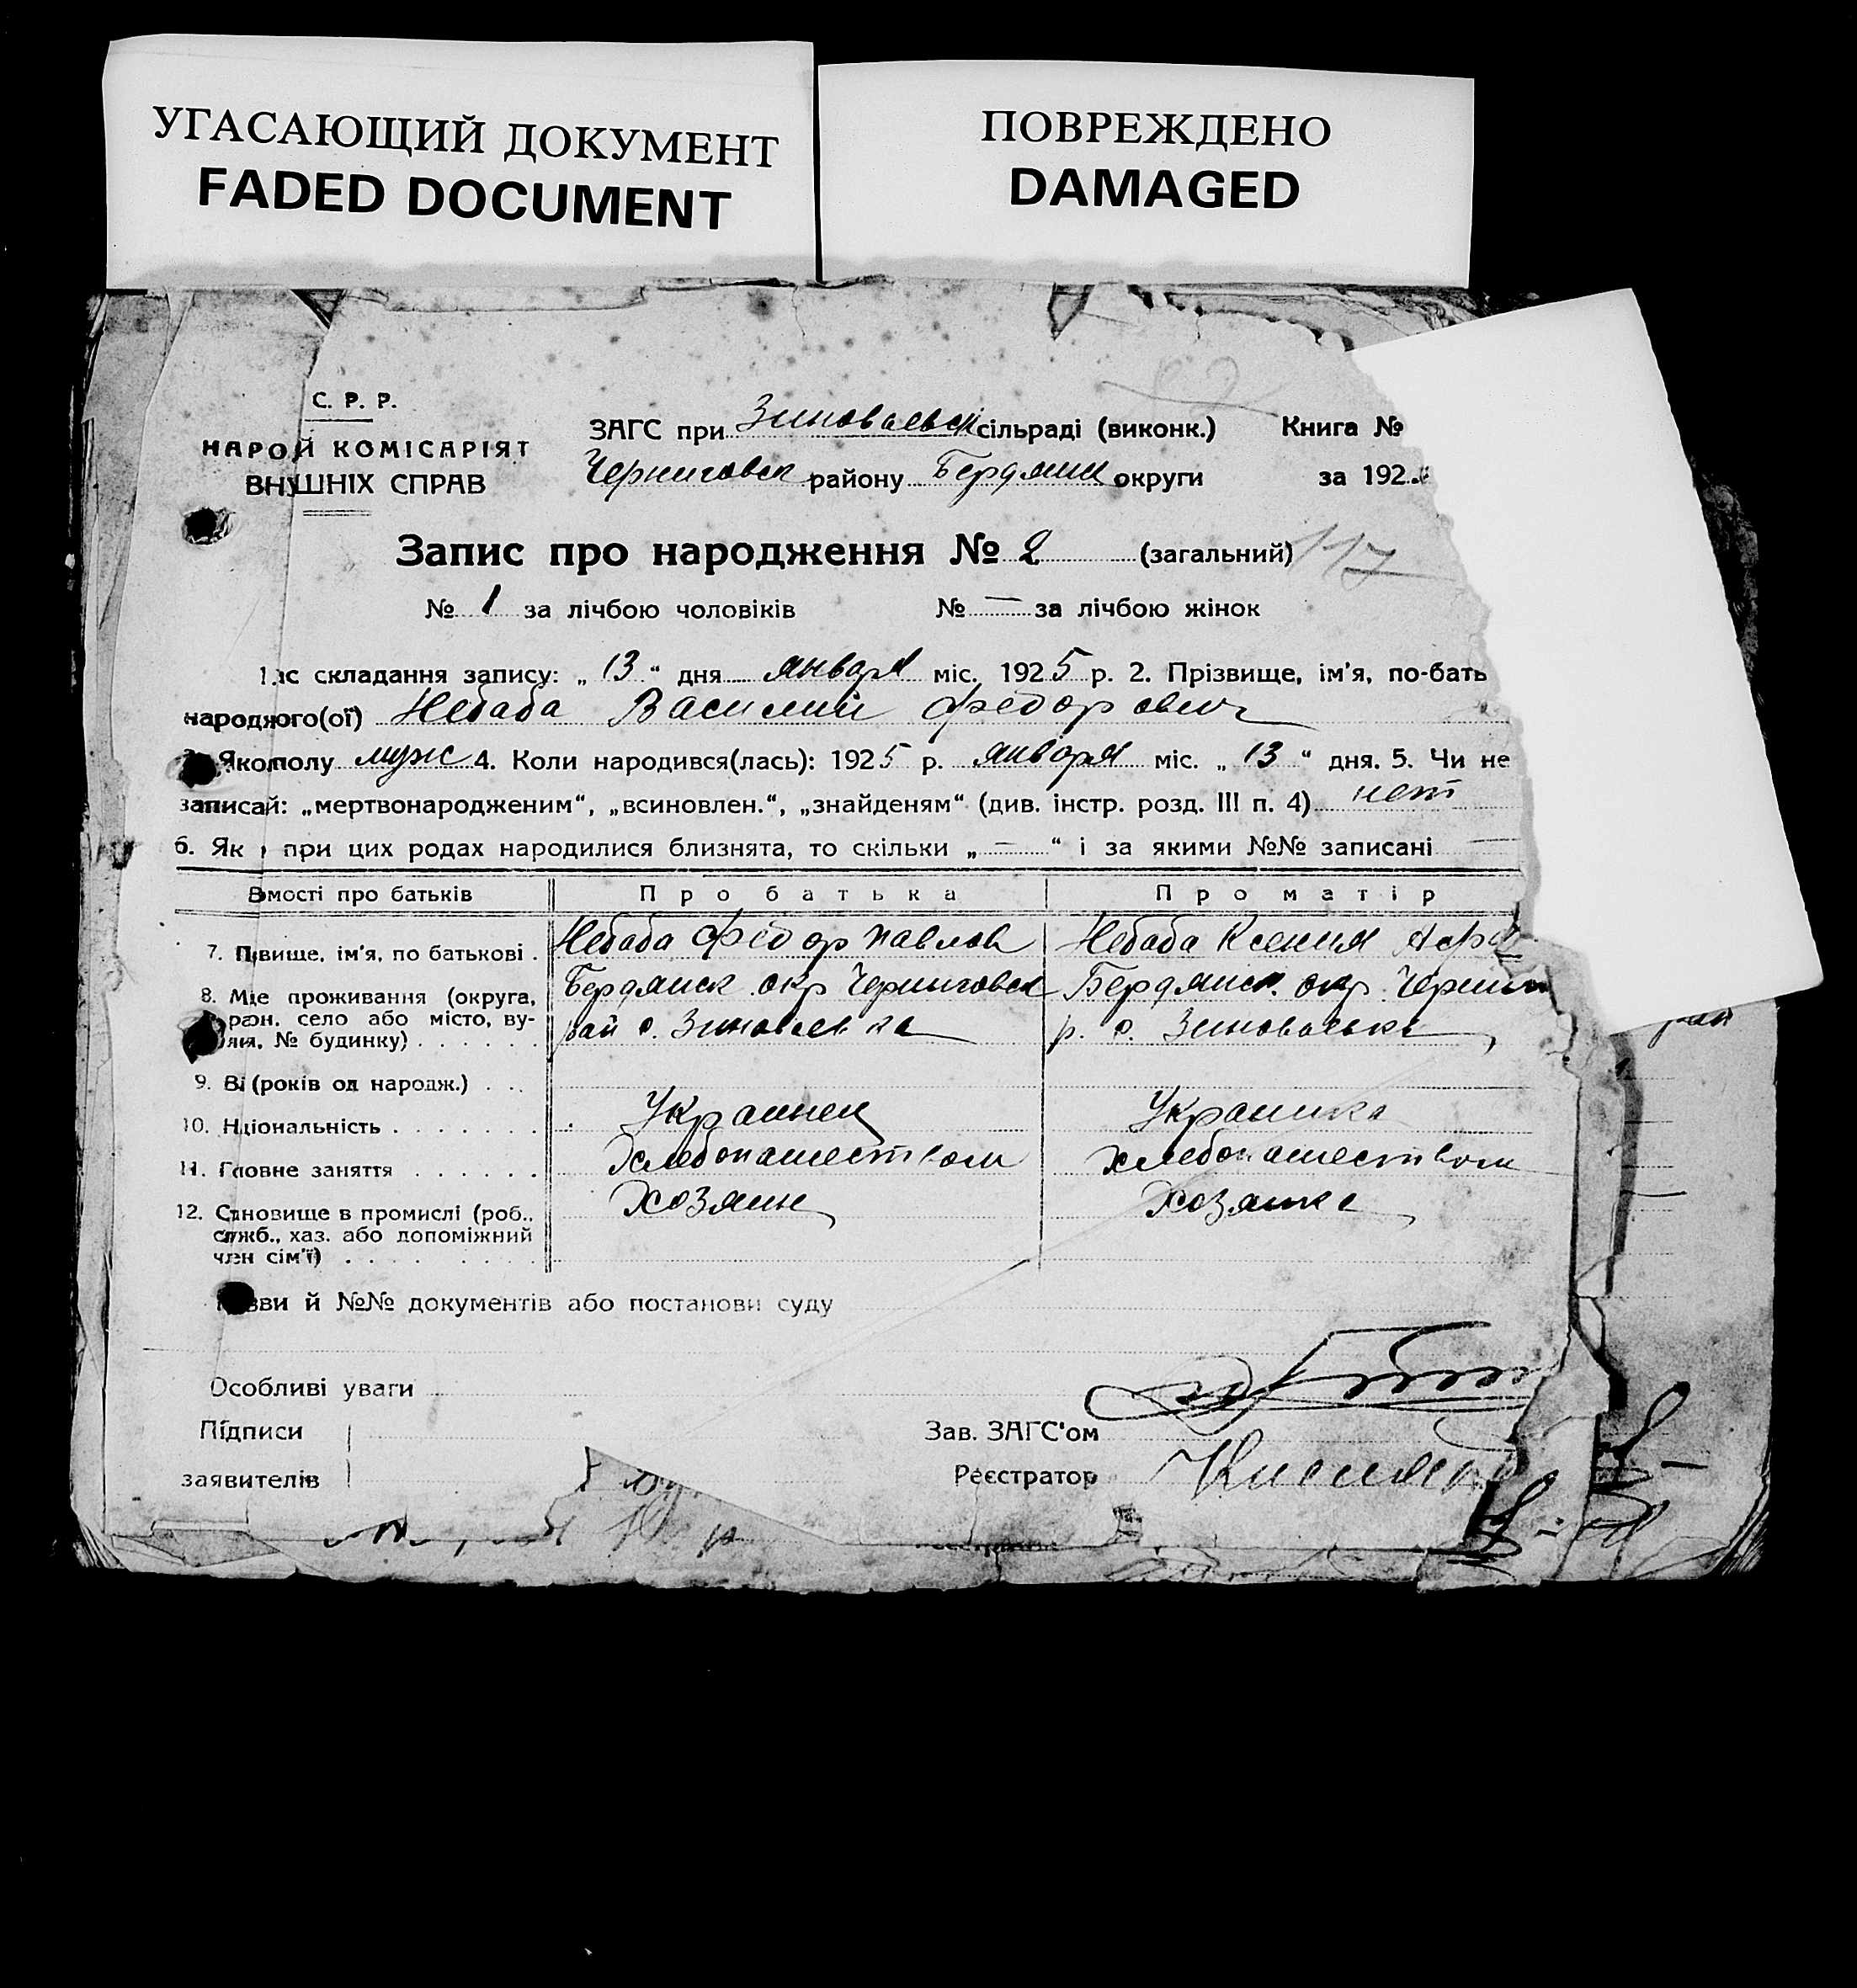 УГАСАЮЩИЙ ДОКУМЕНТ
FADED DOCUMENT
ПОВРЕЖДЕНО
DAMAGED
С. Р. Р.
НАРОЙ КОМІСАРІЯТ
ВНУШНІХ СПРАВ
ЗАГС при Зиноваевск сільраді (виконк.) Книга №
Черниговск району Бердянск округи за 192
Запис про народження № 2 (загальний) 117
№ 1 за лічбою чоловіків № — за лічбою жінок
1. ас складання запису: „ 13 “ дня января міс. 1925 р. 2. Прізвище, ім'я, по-бать
народного(ої) Небаба Василий Федорович
Яко полу муж 4. Коли народився(лась): 1925 р. января міс. „ 13 “ дня. 5. Чи не
записай: „мертвонародженим“, „всиновлен.“, „знайденям“ (див. інстр. розд. III п. 4) нет
6. Як при цих родах народилися близнята, то скільки „ — “ і за якими №№ записані —
Вмості про батьків Про батька Про матір
7. Пвище, ім'я, по батькові . Небаба Федор Павлов Небаба Ксения
8. Мце проживання (округа, Бердянск окр Черниговск Бердянск. окр. Черниг
раон, село або місто, ву- рай с. Зиноваевка р. с. Зиноваевка
№ будинку)
9. Ві (років од народж.)
10. Нціональність Украинец Украинка
11. Гловне заняття Хлебопашеством Хлебопашеством
12. Становище в промислі (роб., Хозяин Хозяика
служб., хаз. або допоміжний
член сім'ї)
зви й №№ документів або постанови суду
Особливі уваги
Підписи Зав. ЗАГС'ом
заявителів Реєстратор